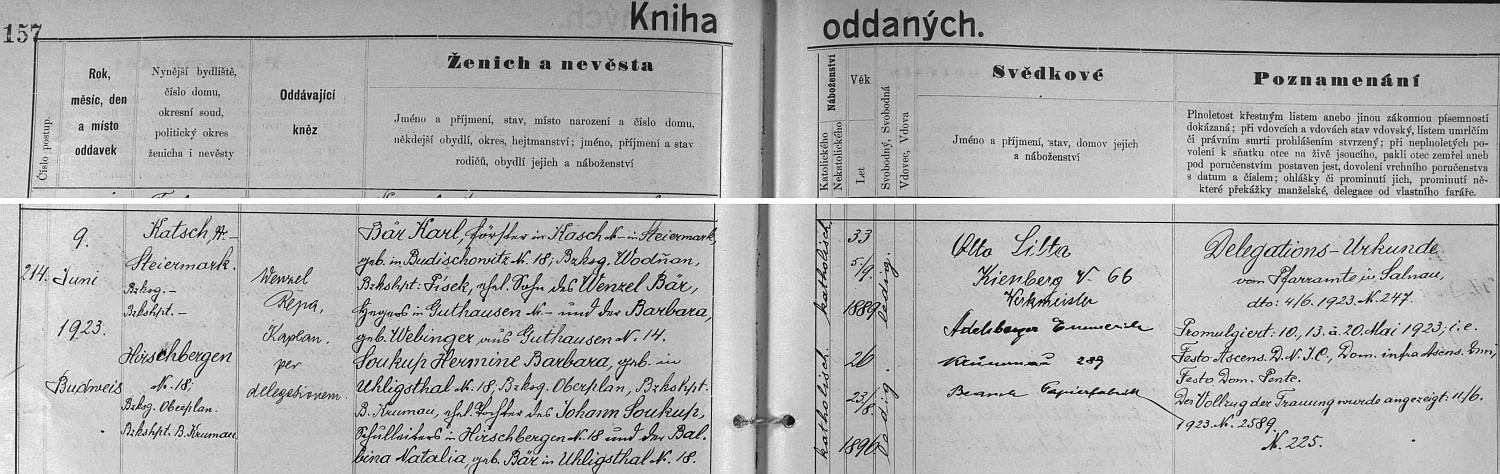 157
Kniha
oddaných.
Číslo postup.
Rok,
měsíc, den
a místo
oddavek
Nynější bydliště,
číslo domu,
okresní soud,
politický okres
ženicha i nevěsty
Oddávající
kněz
Ženich a nevěsta
Jméno a příjmení, stav, místo narození a číslo domu,
někdejší obydlí, okres, hejtmanství; jméno, příjmení a stav
rodičů, obydlí jejich a náboženství
Katolického
Nekatolického
Náboženství
Věk
Let
Svobodný, Svobodná
Vdovec, Vdova
Svědkové
Jméno a příjmení, stav, domov jejich
a náboženství
Poznamenání
Plnoletost křestným listem anebo jinou zákonnou písemností
dokázaná; při vdovcích a vdovách stav vdovský, listem umrlčím
či právním smrti prohlášením stvrzený; při neplnoletých po-
volení k sňatku otce na živě jsoucího, pakli otec zemřel aneb
pod poručenstvím postaven jest, dovolení vrchního poručenstva
s datum a číslem; ohlášky či prominutí jich, prominutí ně-
které překážky manželské, delegace od vlastního faráře.
214.
9.
Juni
1923.
Budweis
Katsch, N –
Steiermark.
Bzkog. –
Bzkshpt. –
Hirschbergen
N. 18;
Bzkog. Oberplan.
Bzkshpt. B. Krumau.
Wenzel
Řepa,
Kaplan.
per
delegationem.
Bär Karl, Förster in Kasch N – in Steiermark,
geb. in Budischowitz N. 18; Bzkog. Wodňan,
Bzkshpt. Písek, ehel. Sohn des Wenzel Bär,
Hegers in Guthausen N. – und der Barbara,
geb. Webinger aus Guthausen N. 14.
Soukup Hermine Barbara, geb. in
Uhligsthal N. 18, Bzkog. Oberplan, Bzkshpt.
B. Krumau, ehel. Tochter des Johann Soukup,
Schulleiters in Hirschbergen N. 18 und der Bal-
bina Natalia, geb. Bär in Uhligsthal N. 18.
katholisch
katholisch
33
5/9.
1889
26
23/8.
1896
ledig.
ledig.
Otto
Kienberg N 66
Werkmeister
Adelsberger Emmerich
Krummau 289
Beamt. Papierfabrik
Delegations-Urkunde
vom Pfarramte in Salnau,
dto: 4/6. 1923. N. 247.
Promulgiert: 10, 13. a 20. Mai 1923; i. e.
Festo Ascens. D. N. J. C., Dom. infra Ascens. Dni,
Festo Dom. Pente.
Der Vollzug der Trauung wurde angezeigt: 11/6.
1923. N. 2589.
N. 225.